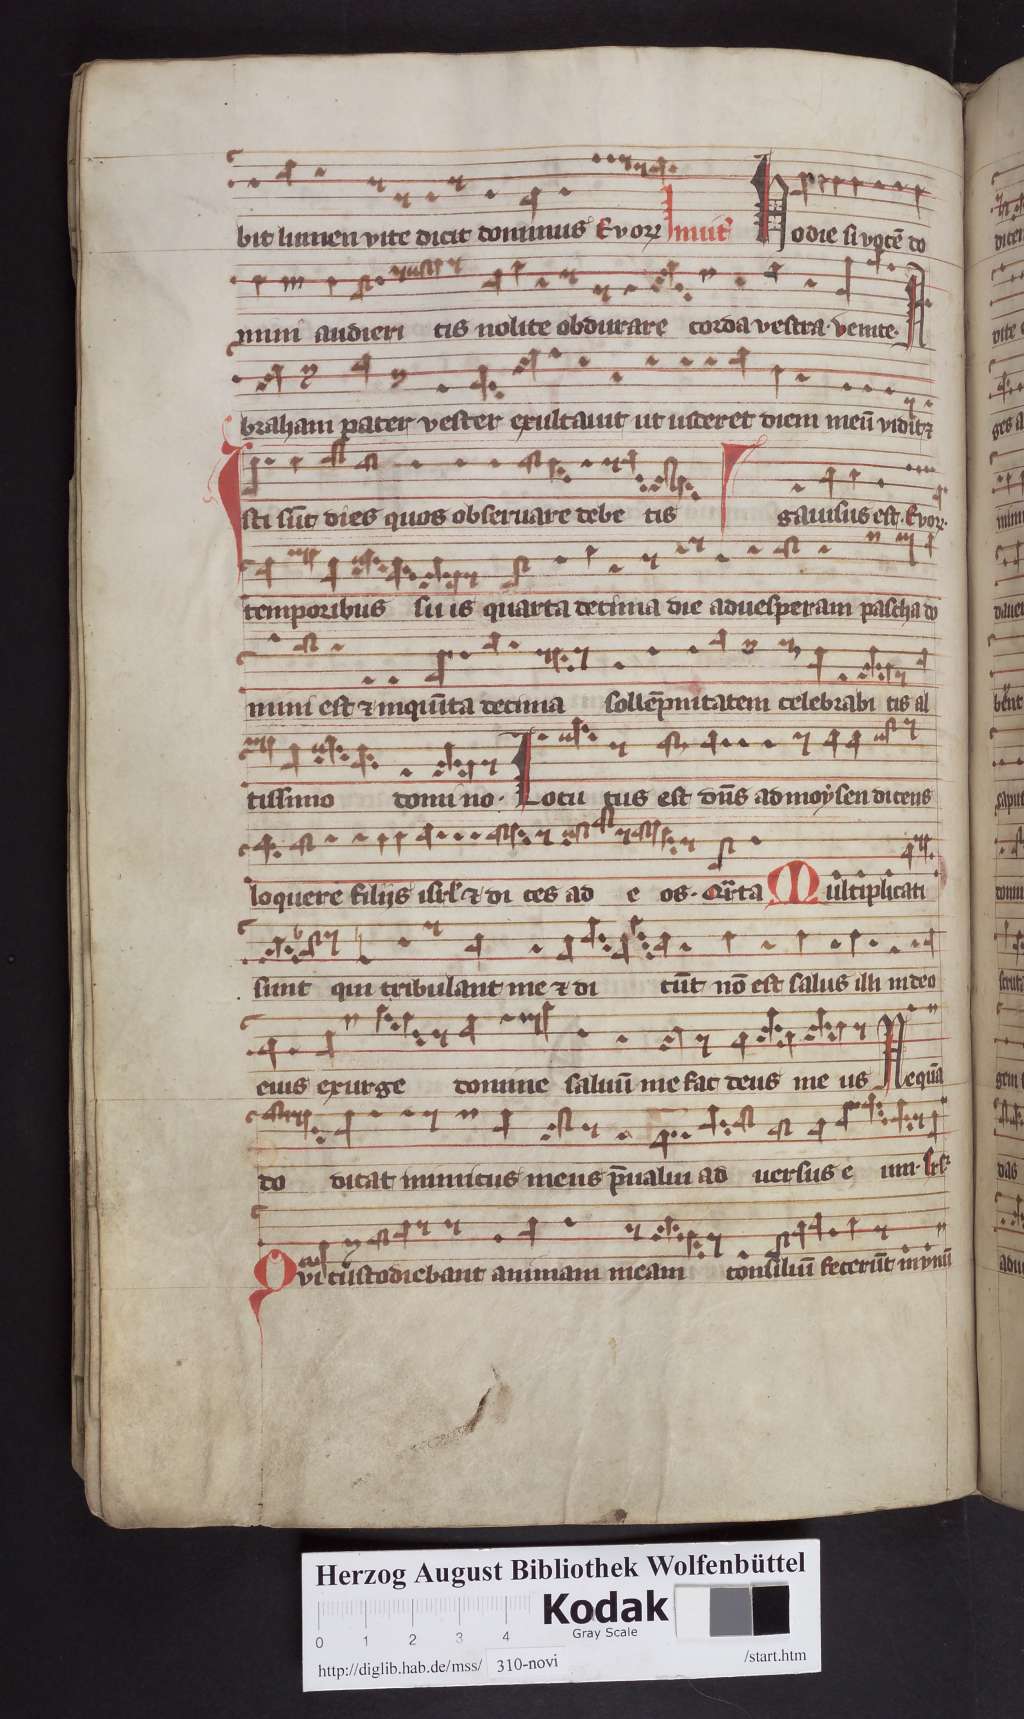 bit lumen vite dicit dominus Evorꝝ Inuit᷑ Hodie si vocē do
mini audieri tis nolite obdurare corda vestra. venite. A
braham pater vester exultauit ut uiceret diem meū vidit ⁊
Isti sūt dies quos obseruare debe tis gauisus est. Evorꝝ.
temporibus su is quarta decima die aduesperam pascha do
mini est ⁊ inquīta decima sollēpnitatem celebrabi tis al
tissimo domi no. Locu tus est dn̄s ad moysen dicens
loquere filijs isrl̄ ⁊ di ces ad e os. Qr̄ta Multiplicati
sunt qui tribulant me ⁊ di cūt nō est salus illi in deo
eius exurge domine saluū me fac deus me us Nequā
do dicat inimicus meus p̄ualui ad uersus e um.
Qui custodiebant animam meam consiliū fecerūt in vnū
Herzog August Bibliothek Wolfenbüttel
Kodak
Gray Scale
0 1 2 3 4
http://diglib.hab.de/mss/ 310-novi /start.htm